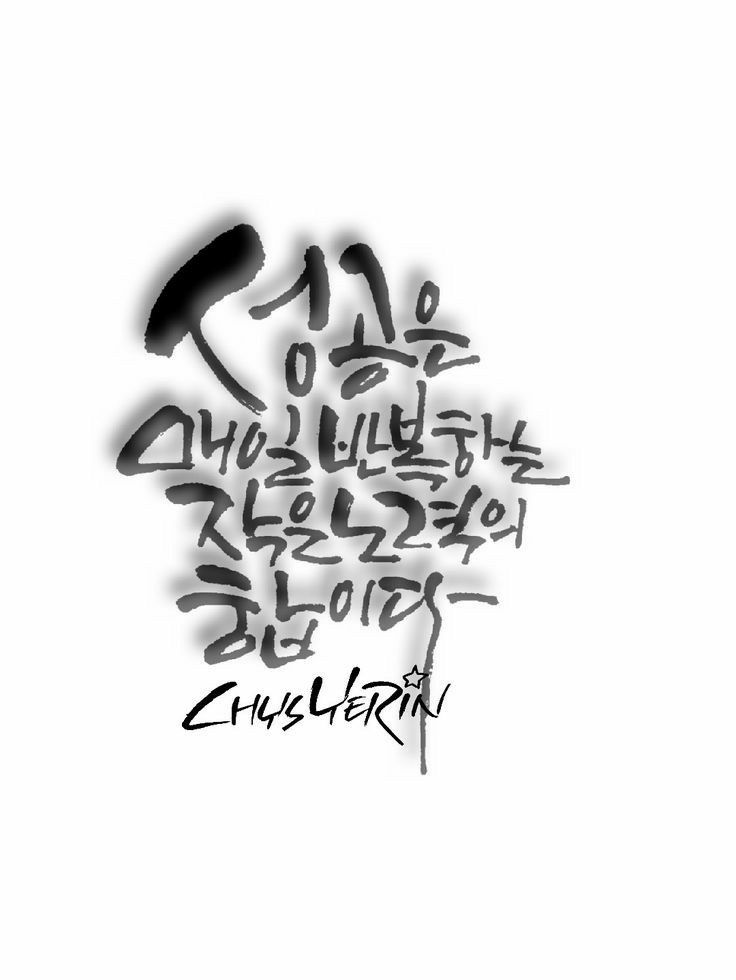 성공은
매일 반복하는
작은 노력의
합이다
CHYSYERIN